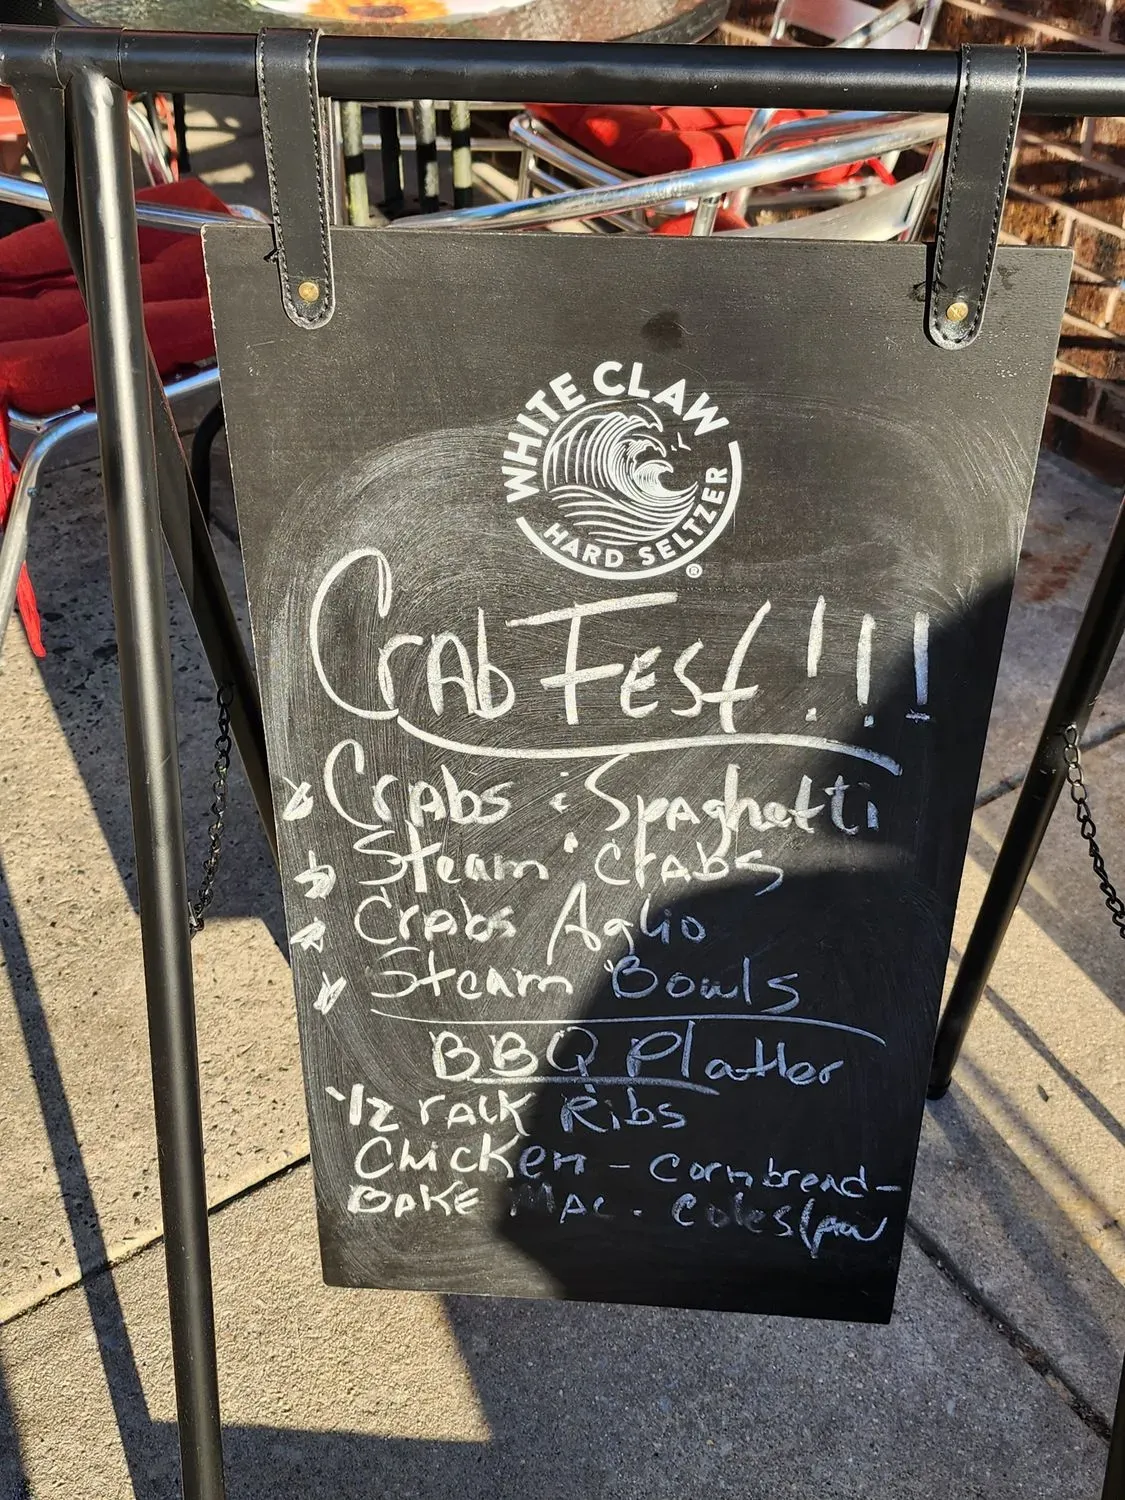 WHITE CLAW
HARD SELTZER
®
CrAb FEST!!!
CrAbs & Spaghetti
Steam CrAbs
CrAbs Aglio
Steam Bowls
BBQ Platter
1/2 rack Ribs
Chicken - Cornbread-
BAKE MAC. Coleslaw